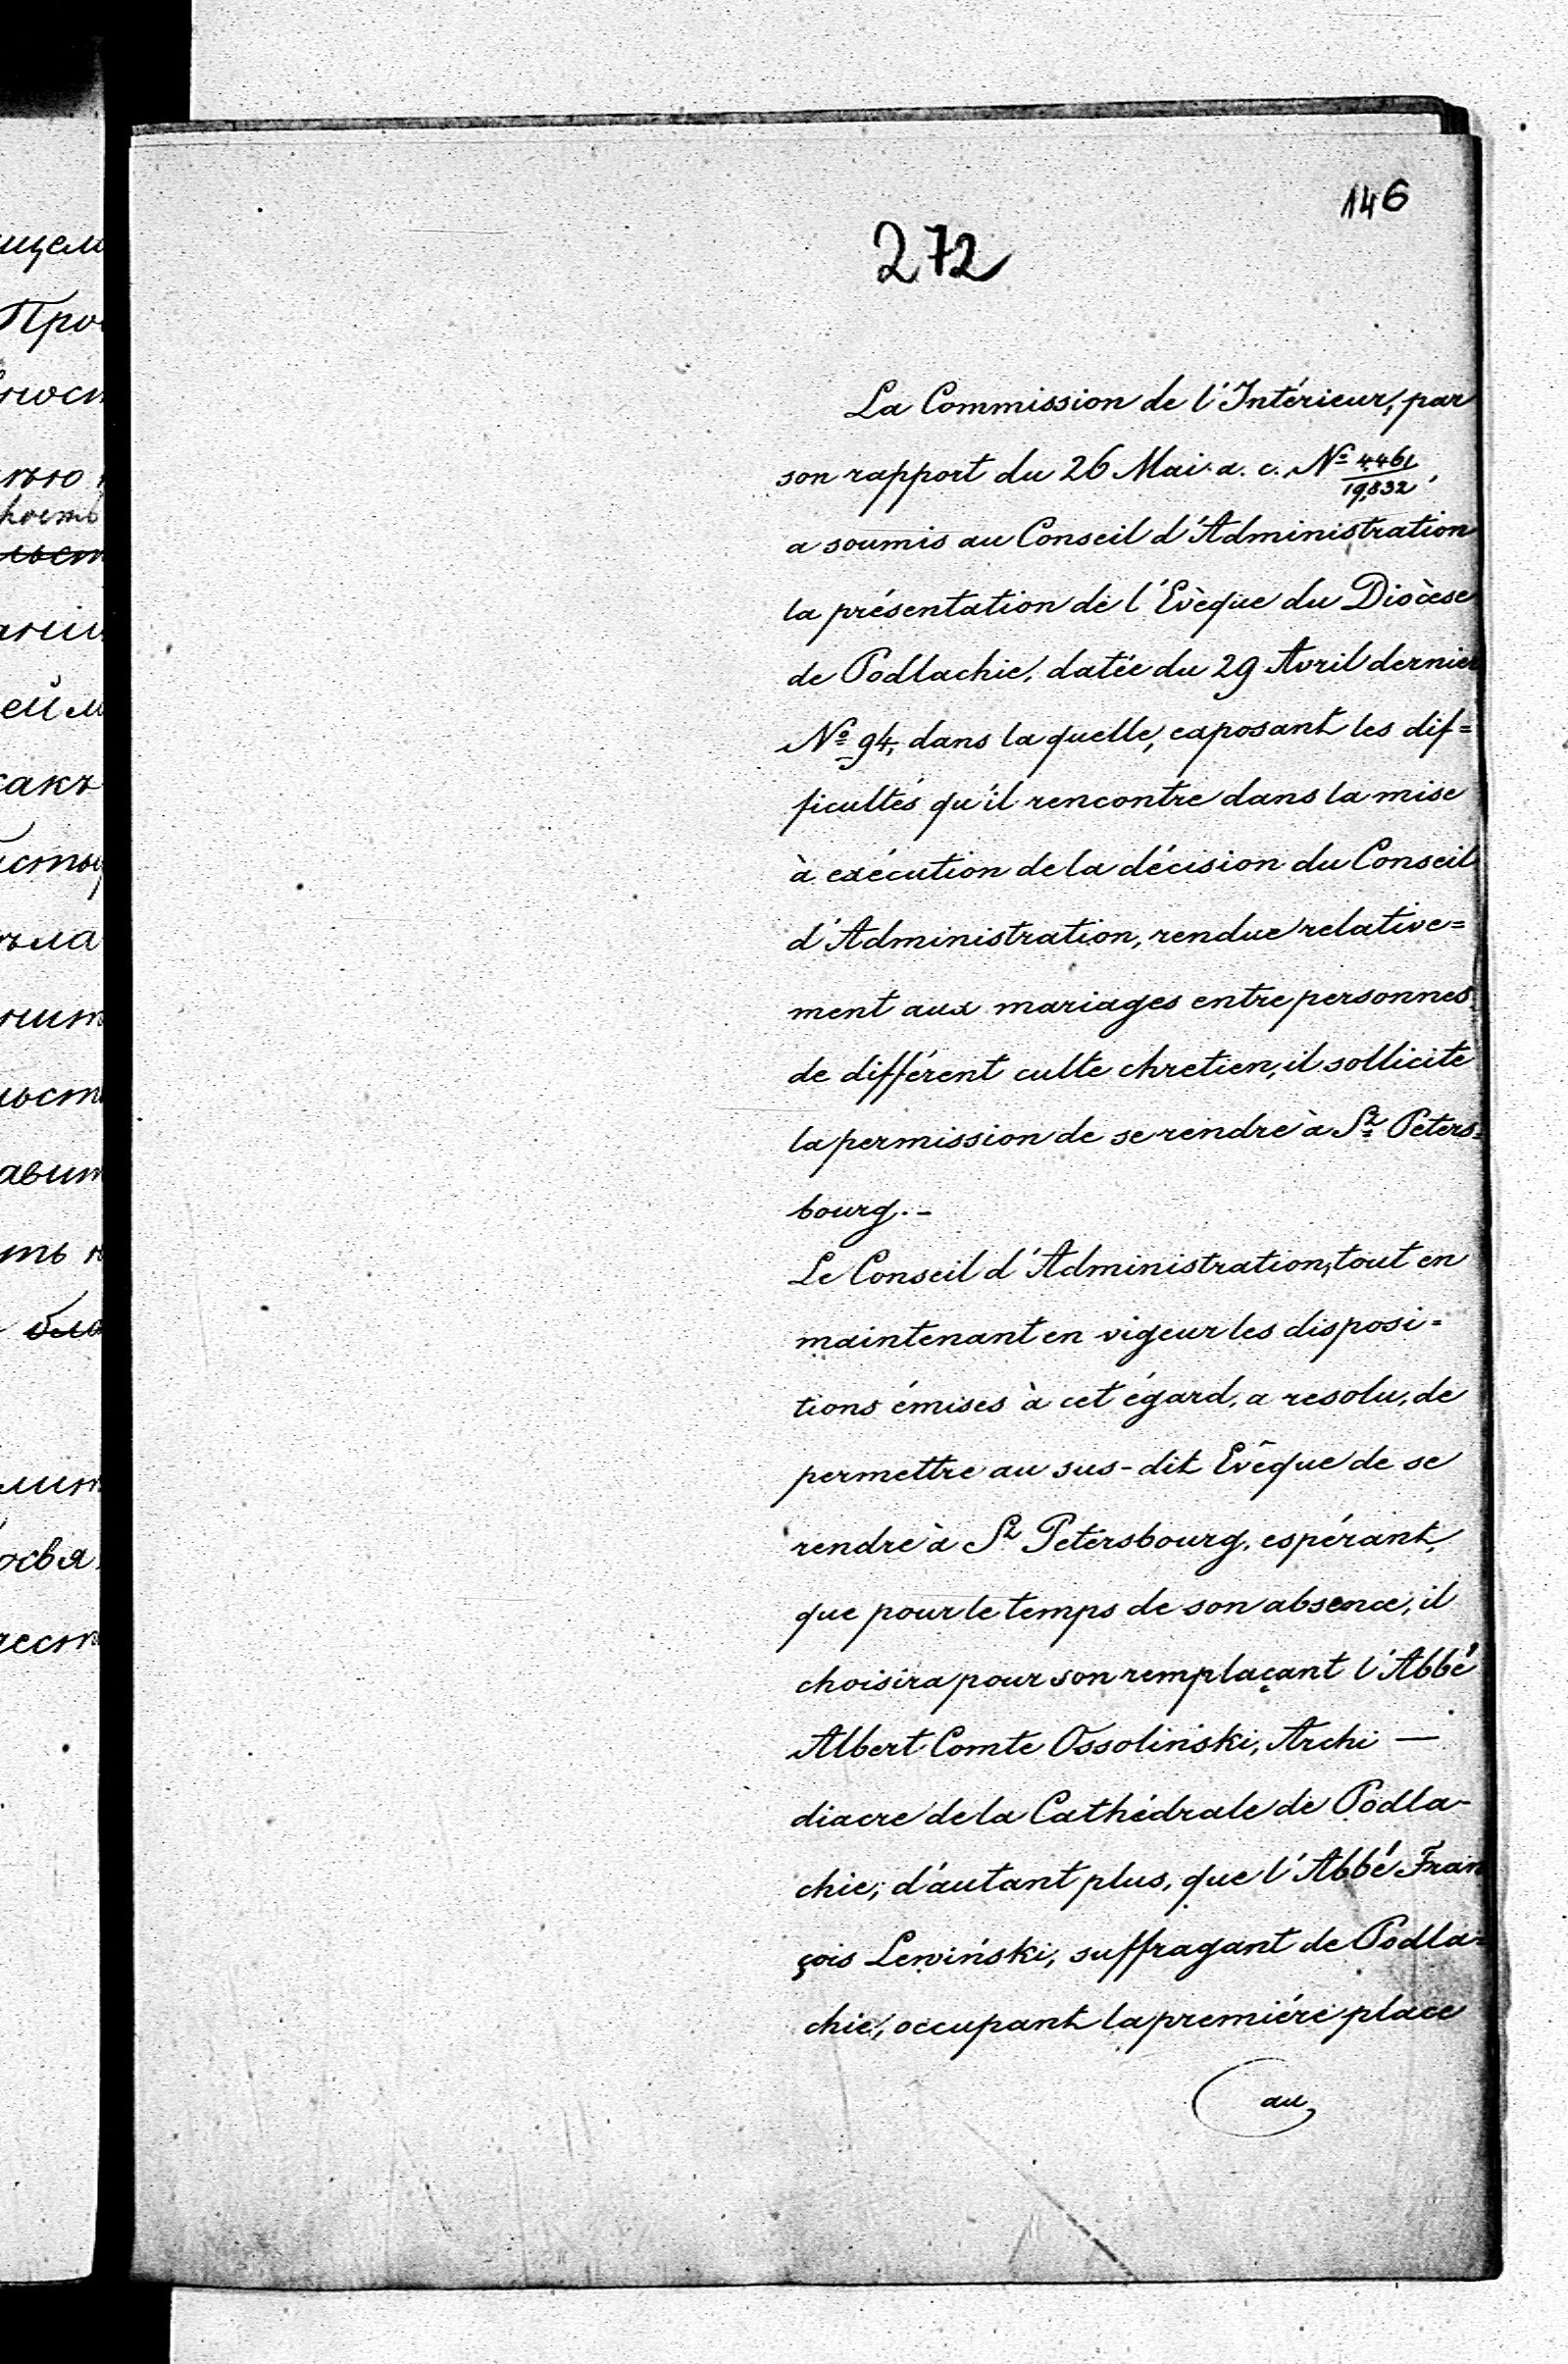 146
272
La Commission de l'Intérieur, par
son rapport du 26 Mai a. c. № 4461/19,832,
a soumis au Conseil d'Administration
la présentation de l'Evèque du Diòcèse
de Podlachie, datée du 29 Avril dernier
№ 94, dans laquelle, exposant les dif=
ficultés qu'il rencontre dans la mise
à exécution de la décision du Conseil
d'Administration, rendue relative=
ment aux mariages entre personnes
de différent culte chretien, il sollicite
la permission de se rendre à St Peters=
bourg.-
Le Conseil d'Administration, tout en
maintenant en vigeur les disposi=
tions émises à cet égard, a resolu, de
permettre au sus-dit Evêque de se
rendre à St Petersbourg, espérant,
que pour le temps de son absence, il
choisira pour son remplaçant l'Abbé
Albert Comte Ossoliński, Archi —
diacre de la Cathédrale de Podla-
chie; d'autant plus, que l'Abbé Fran
çois Lewiński, suffragant de Podla=
chie, occupant la premiére place
au